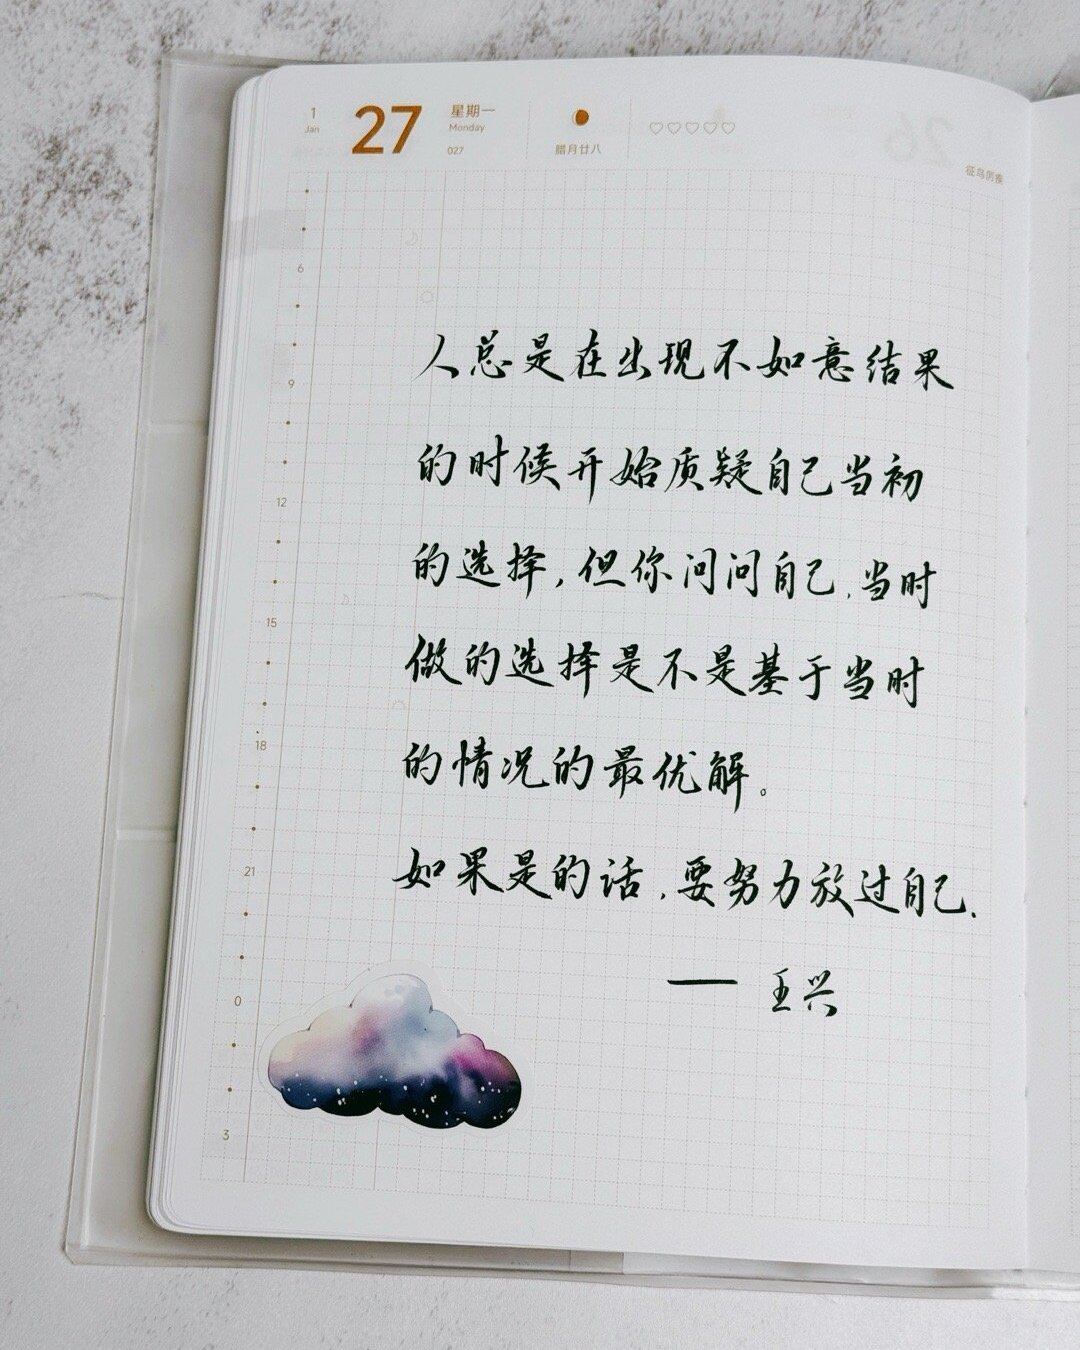 1
Jan
27
星期一
Monday
027
腊月廿八
♡♡♡♡♡
6
9
12
15
18
21
0
3
人总是在出现不如意结果
的时候开始质疑自己当初
的选择,但你问问自己,当时
做的选择是不是基于当时
的情况的最优解。
如果是的话,要努力放过自己.
— 王兴